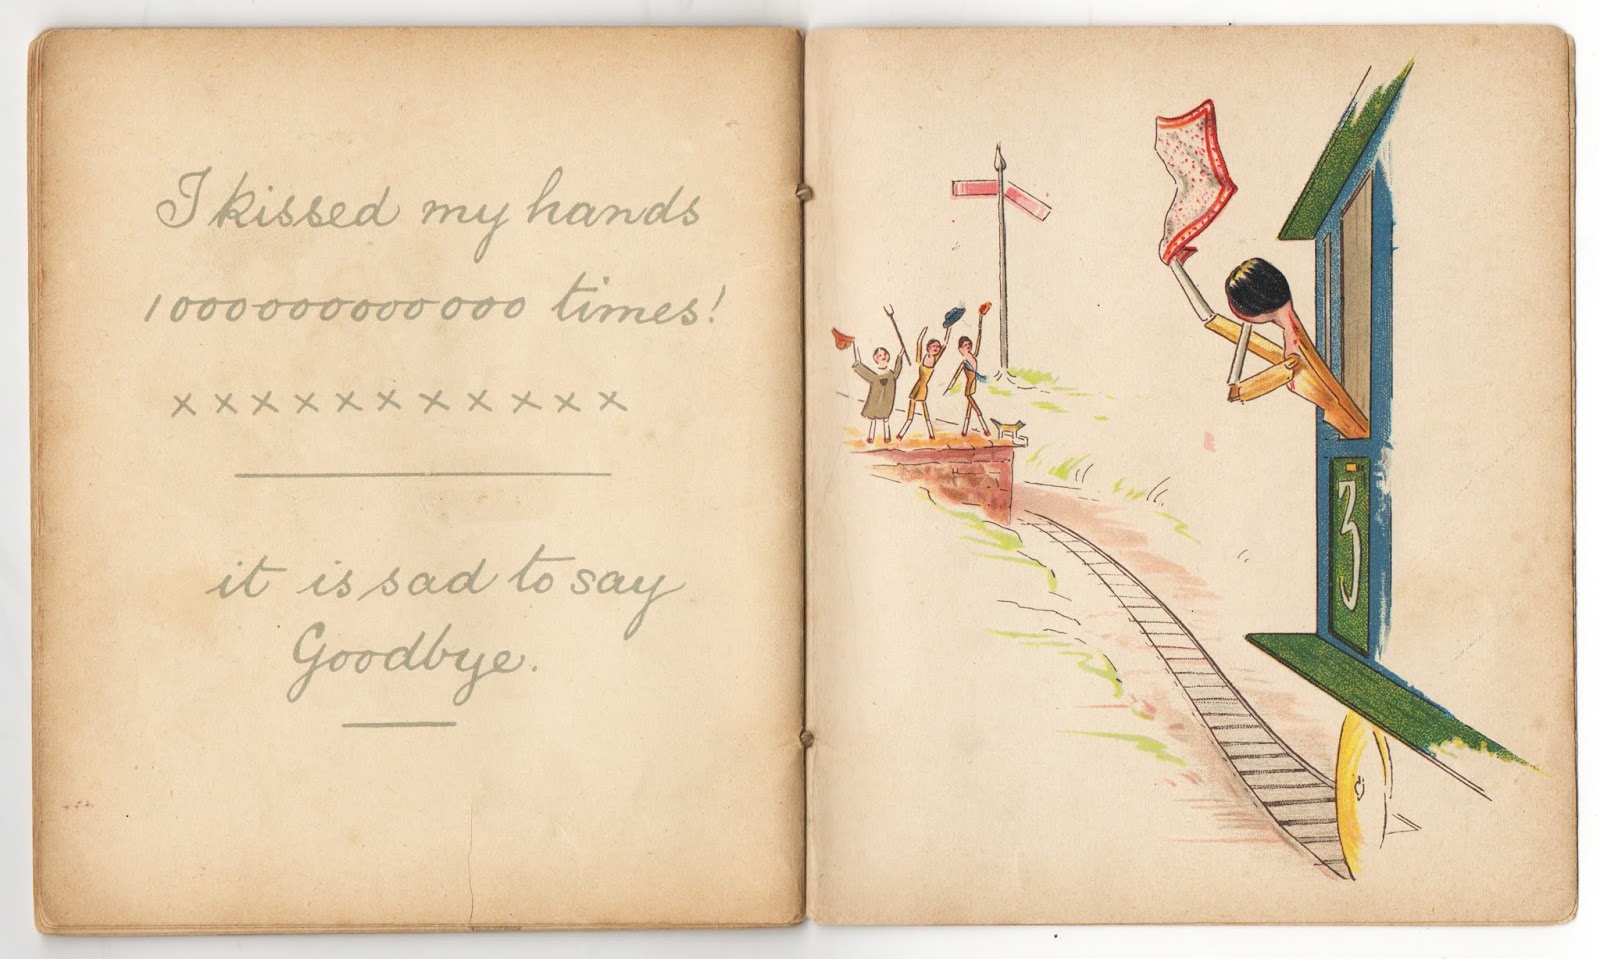 I kissed my hands
10000000000000 times!
x x x x x x x x x x x
it is sad to say
Goodbye.
3